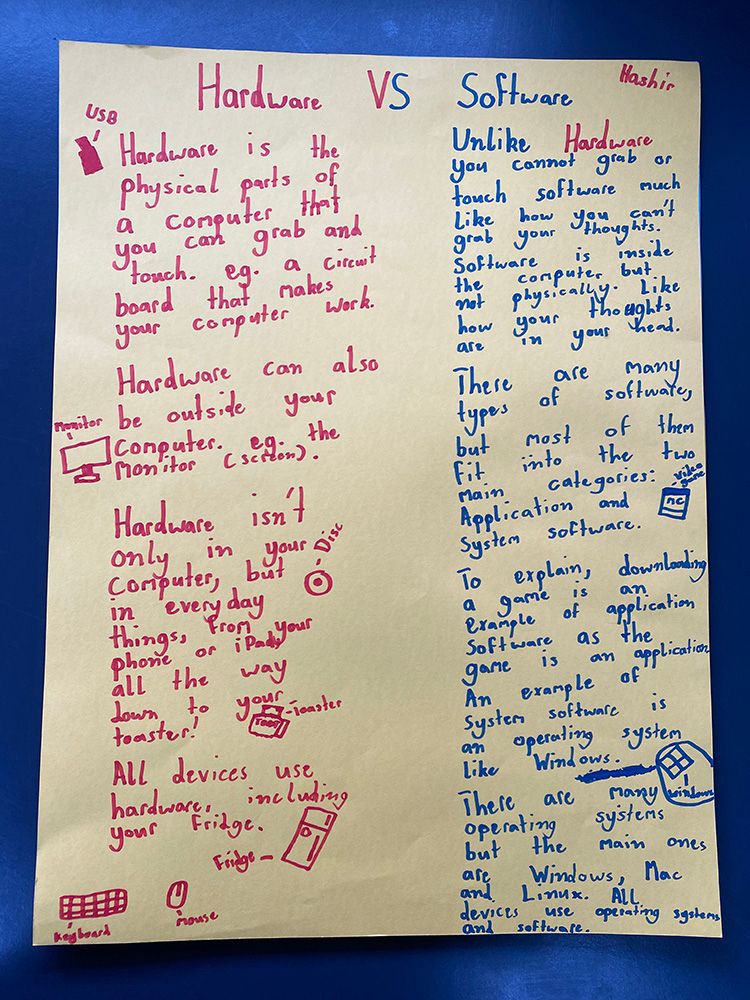 Hardware VS Software
Hashir
USB
Hardware is the
physical parts of
a computer that
you can grab and
touch. eg. a circuit
board that makes
your computer work.
Hardware can also
be outside your
Computer. eg. the
monitor (screen).
Monitor
Hardware isn't
only in your
Computer, but
in everyday
things, from your
phone or iPad,
all the way
down to your
toaster!
Disc
Toaster
All devices use
hardware, including
your Fridge.
Fridge
Keyboard
Mouse
Unlike Hardware
you cannot grab or
touch software much
Like how you can't
grab your thoughts.
Software is inside
the computer but
not physically. Like
how your thoughts
are in your head.
There are many
types of software,
but most of them
fit into the two
main categories:
Application and
System software.
Video
game
MC
To explain, downloading
a game is an
example of application
Software as the
game is an application
An example of
System software is
an operating system
like Windows.
Windows
There are many
operating systems
but the main ones
are Windows, Mac
and Linux. All
devices use operating systems
and software.